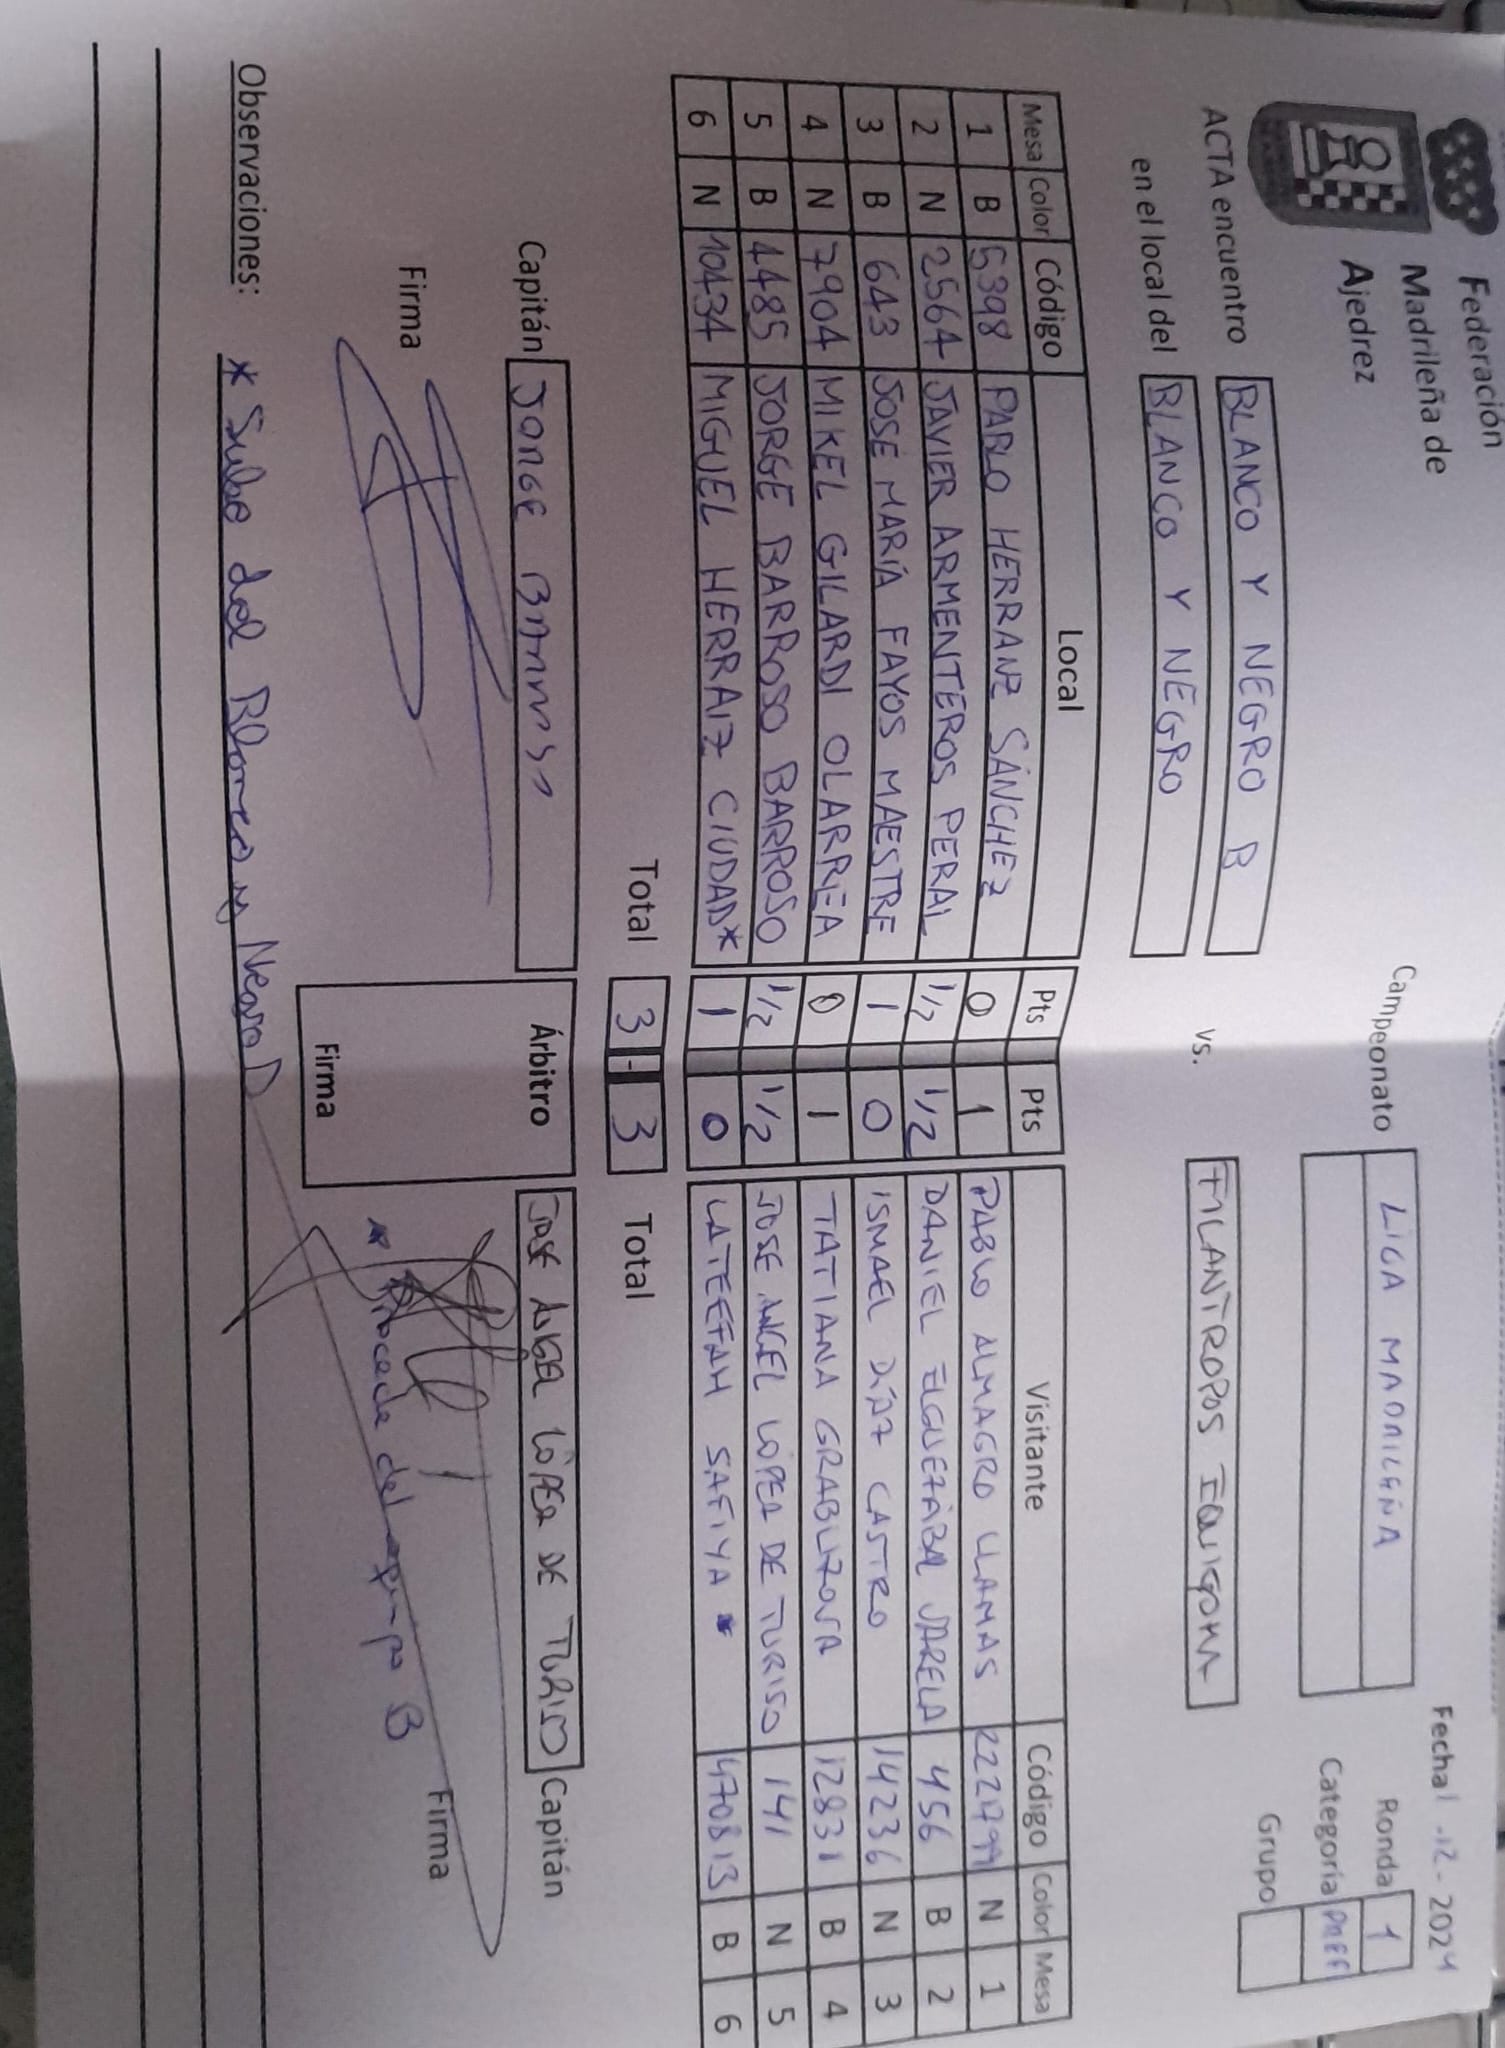 Federación
Madrileña de
Ajedrez
Campeonato LIGA MADRILEÑA
Fecha 1 -12- 2024
Ronda 1
Categoría PREF
Grupo
ACTA encuentro BLANCO Y NEGRO B vs. FILANTROPOS EQUIGOMA
en el local del BLANCO Y NEGRO
Mesa Color Código Local Pts Pts Visitante Código Color Mesa
1 B 5398 PABLO HERRANZ SÁNCHEZ 0 1 PABLO ALMAGRO LLAMAS N 1
2 N 2564 JAVIER ARMENTEROS PERAL 1/2 1/2 DANIEL VARELA 456 B 2
3 B 643 JOSE MARÍA FAYOS MAESTRE 1 0 ISMAEL DÍAZ CASTRO 14236 N 3
4 N 7904 MIKEL GILARDI OLARREA 0 1 TATIANA GRABUZOVA 12831 B 4
5 B 4485 JORGE BARROSO BARROSO 1/2 1/2 JOSE ANGEL LOPEZ DE TURISO 141 N 5
6 N 10434 MIGUEL HERRAIZ CIUDAD* 1 0 LATEEFAH SAFIYA * 470813 B 6
Total 3 - 3 Total
Capitán JORGE BARROSO Árbitro JOSE ANGEL LÓPEZ DE TURISO Capitán
Firma Firma Firma
* Procede del equipo B
Observaciones: * Sube del Blanco y Negro D